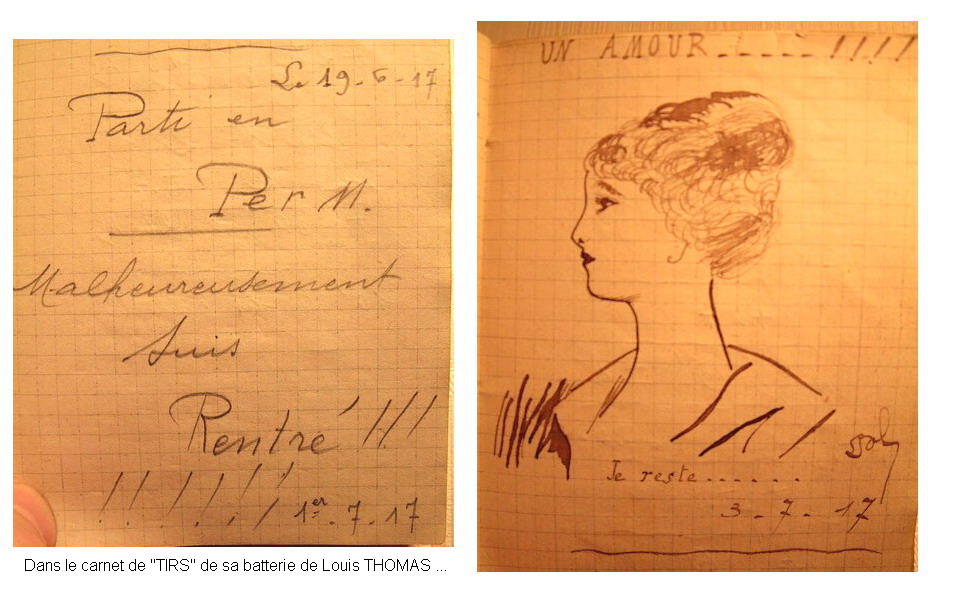 Le 19-6-17
Parti en
Perm.
Malheureusement
suis
Rentré !!!
! ! ! ! ! ! 1er-7-17
Dans le carnet de "TIRS" de sa batterie de Louis THOMAS ...
UN AMOUR..... !!!!
Je reste......
3-7-17